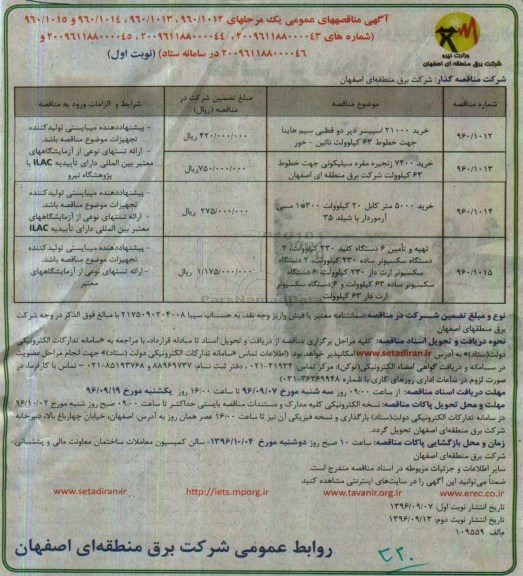 آگهی مناقصههای عمومی یک مرحله‏ای ۹۶۰/۱۰۱۲ ، ۹۶۰/۱۰۱۳ ، ۹۶۰/۱۰۱۴ و ۹۶۰/۱۰۱۵
(شماره های ۲۰۰۹۶۱۱۸۸۰۰۰۰۴۳ ، ۲۰۰۹۶۱۱۸۸۰۰۰۰۴۴ ، ۲۰۰۹۶۱۱۸۸۰۰۰۰۴۵ و
۲۰۰۹۶۱۱۸۸۰۰۰۰۴۶ در سامانه ستاد) (نوبت اول)
وزارت نیرو
شرکت برق منطقه ای اصفهان
شرکت مناقصه گذار: شرکت برق منطقه‌ای اصفهان
شماره مناقصه
موضوع مناقصه
مبلغ تضمین شرکت در مناقصه (ریال)
شرایط و الزامات ورود به مناقصه
۹۶۰/۱۰۱۲
خرید ۲۱۰۰۰ اسپیسر دمپر دو قطبی سیم هاینا
جهت خطوط ۶۳ کیلوولت نائین - خور
۴۲۰/۰۰۰/۰۰۰ ریال
- پیشنهاددهنده میبایستی تولیدکننده
تجهیزات موضوع مناقصه باشد.
- ارائه تستهای نوعی از آزمایشگاههای
معتبر بین المللی دارای تأییدیه ILAC یا
پژوهشگاه نیرو
۹۶۰/۱۰۱۳
خرید ۷۴۰۰ زنجیره مقره سیلیکونی جهت خطوط
۶۳ کیلوولت شرکت برق منطقه ای اصفهان
۷۵۰/۰۰۰/۰۰۰ریال
۹۶۰/۱۰۱۴
خرید ۵۰۰۰ متر کابل ۲۰ کیلوولت ۳۰۰*۱ مسی
آرموردار با شیلد ۳۵
۲۷۵/۰۰۰/۰۰۰ ریال
- پیشنهاددهنده میبایستی تولیدکننده
تجهیزات موضوع مناقصه باشد.
- ارائه تستهای نوعی از آزمایشگاههای
معتبر بین المللی دارای تأییدیه ILAC
۹۶۰/۱۰۱۵
تهیه و تأمین ۶ دستگاه کلید ۲۳۰ کیلوولت، ۲
دستگاه سکسیونر ساده ۲۳۰ کیلوولت، ۲ دستگاه
سکسیونر ارت دار ۲۳۰ کیلوولت، ۶ دستگاه
سکسیونر ساده ۶۳ کیلوولت و ۶ دستگاه سکسیونر
ارت دار ۶۳ کیلوولت
۱/۱۷۵/۰۰۰/۰۰۰ ریال
- پیشنهاددهنده میبایستی تولیدکننده
تجهیزات موضوع مناقصه باشد.
- ارائه تستهای نوعی از آزمایشگاههای
معتبر
نوع و مبلغ تضمین شرکت در مناقصه: ضمانتنامه معتبر یا فیش واریز وجه نقد، به حساب سیبا ۲۱۷۵۰۹۰۲۰۴۰۰۸ با مبالغ فوق الذکر در وجه شرکت
برق منطقه‏ای اصفهان
نحوه دریافت و تحویل اسناد مناقصه: کلیه مراحل برگزاری مناقصه از دریافت و تحویل اسناد تا مبادله قرارداد، با مراجعه به «سامانه تدارکات الکترونیکی
دولت(ستاد)» به آدرس www.setadiran.ir امکانپذیر خواهد بود. (اطلاعات تماس «سامانه تدارکات الکترونیکی دولت (ستاد)» جهت انجام مراحل عضویت
در سامانه و دریافت گواهی امضاء الکترونیکی(توکن)، مرکز تماس: ۴۱۹۳۴-۰۲۱، دفتر ثبت نام: ۸۸۹۶۹۷۳۷ و ۸۵۱۹۳۷۶۸-۰۲۱ - تماس با کارفرما، در
صورت لزوم در ساعات اداری روزهای کاری با شماره ۳۶۲۶۹۹۴۸-۰۳۱)
مهلت دریافت اسناد مناقصه: از ساعت ۰۹:۰۰ روز سه شنبه مورخ ۹۶/۰۹/۰۷ تا ساعت ۱۶:۰۰ روز یکشنبه مورخ ۹۶/۰۹/۱۹
مهلت و محل تحویل پاکات مناقصه: نسخه الکترونیکی کلیه مدارک و مستندات مناقصه بایستی حداکثر تا ساعت ۰۹:۰۰ صبح روز شنبه مورخ ۹۶/۱۰/۰۲
در سامانه تدارکات الکترونیکی دولت(ستاد) بارگذاری و نسخه فیزیکی آن نیز تا ساعت ۱۶:۰۰ عصر همان روز به آدرس: اصفهان، خیابان چهارباغ بالا، دبیرخانه
شرکت برق منطقه‌ای اصفهان تحویل گردد.
زمان و محل بازگشایی پاکات مناقصه: ساعت ۱۰ صبح روز دوشنبه مورخ ۱۳۹۶/۱۰/۰۴- سالن کمیسیون معاملات ساختمان معاونت مالی و پشتیبانی
شرکت برق منطقه‌ای اصفهان
سایر اطلاعات و جزئیات مربوطه در اسناد مناقصه مندرج است.
ضمناً می‏توانید این آگهی را در سایت‌های اینترنتی مشاهده کنید
www.erec.co.ir www.tavanir.org.ir http://iets.mporg.ir www.setadiran.ir
تاریخ انتشار نوبت اول: ۱۳۹۶/۰۹/۰۷
تاریخ انتشار نوبت دوم: ۱۳۹۶/۰۹/۱۳
م/الف ۱۰۹۵۵۹
روابط عمومی شرکت برق منطقه‌ای اصفهان